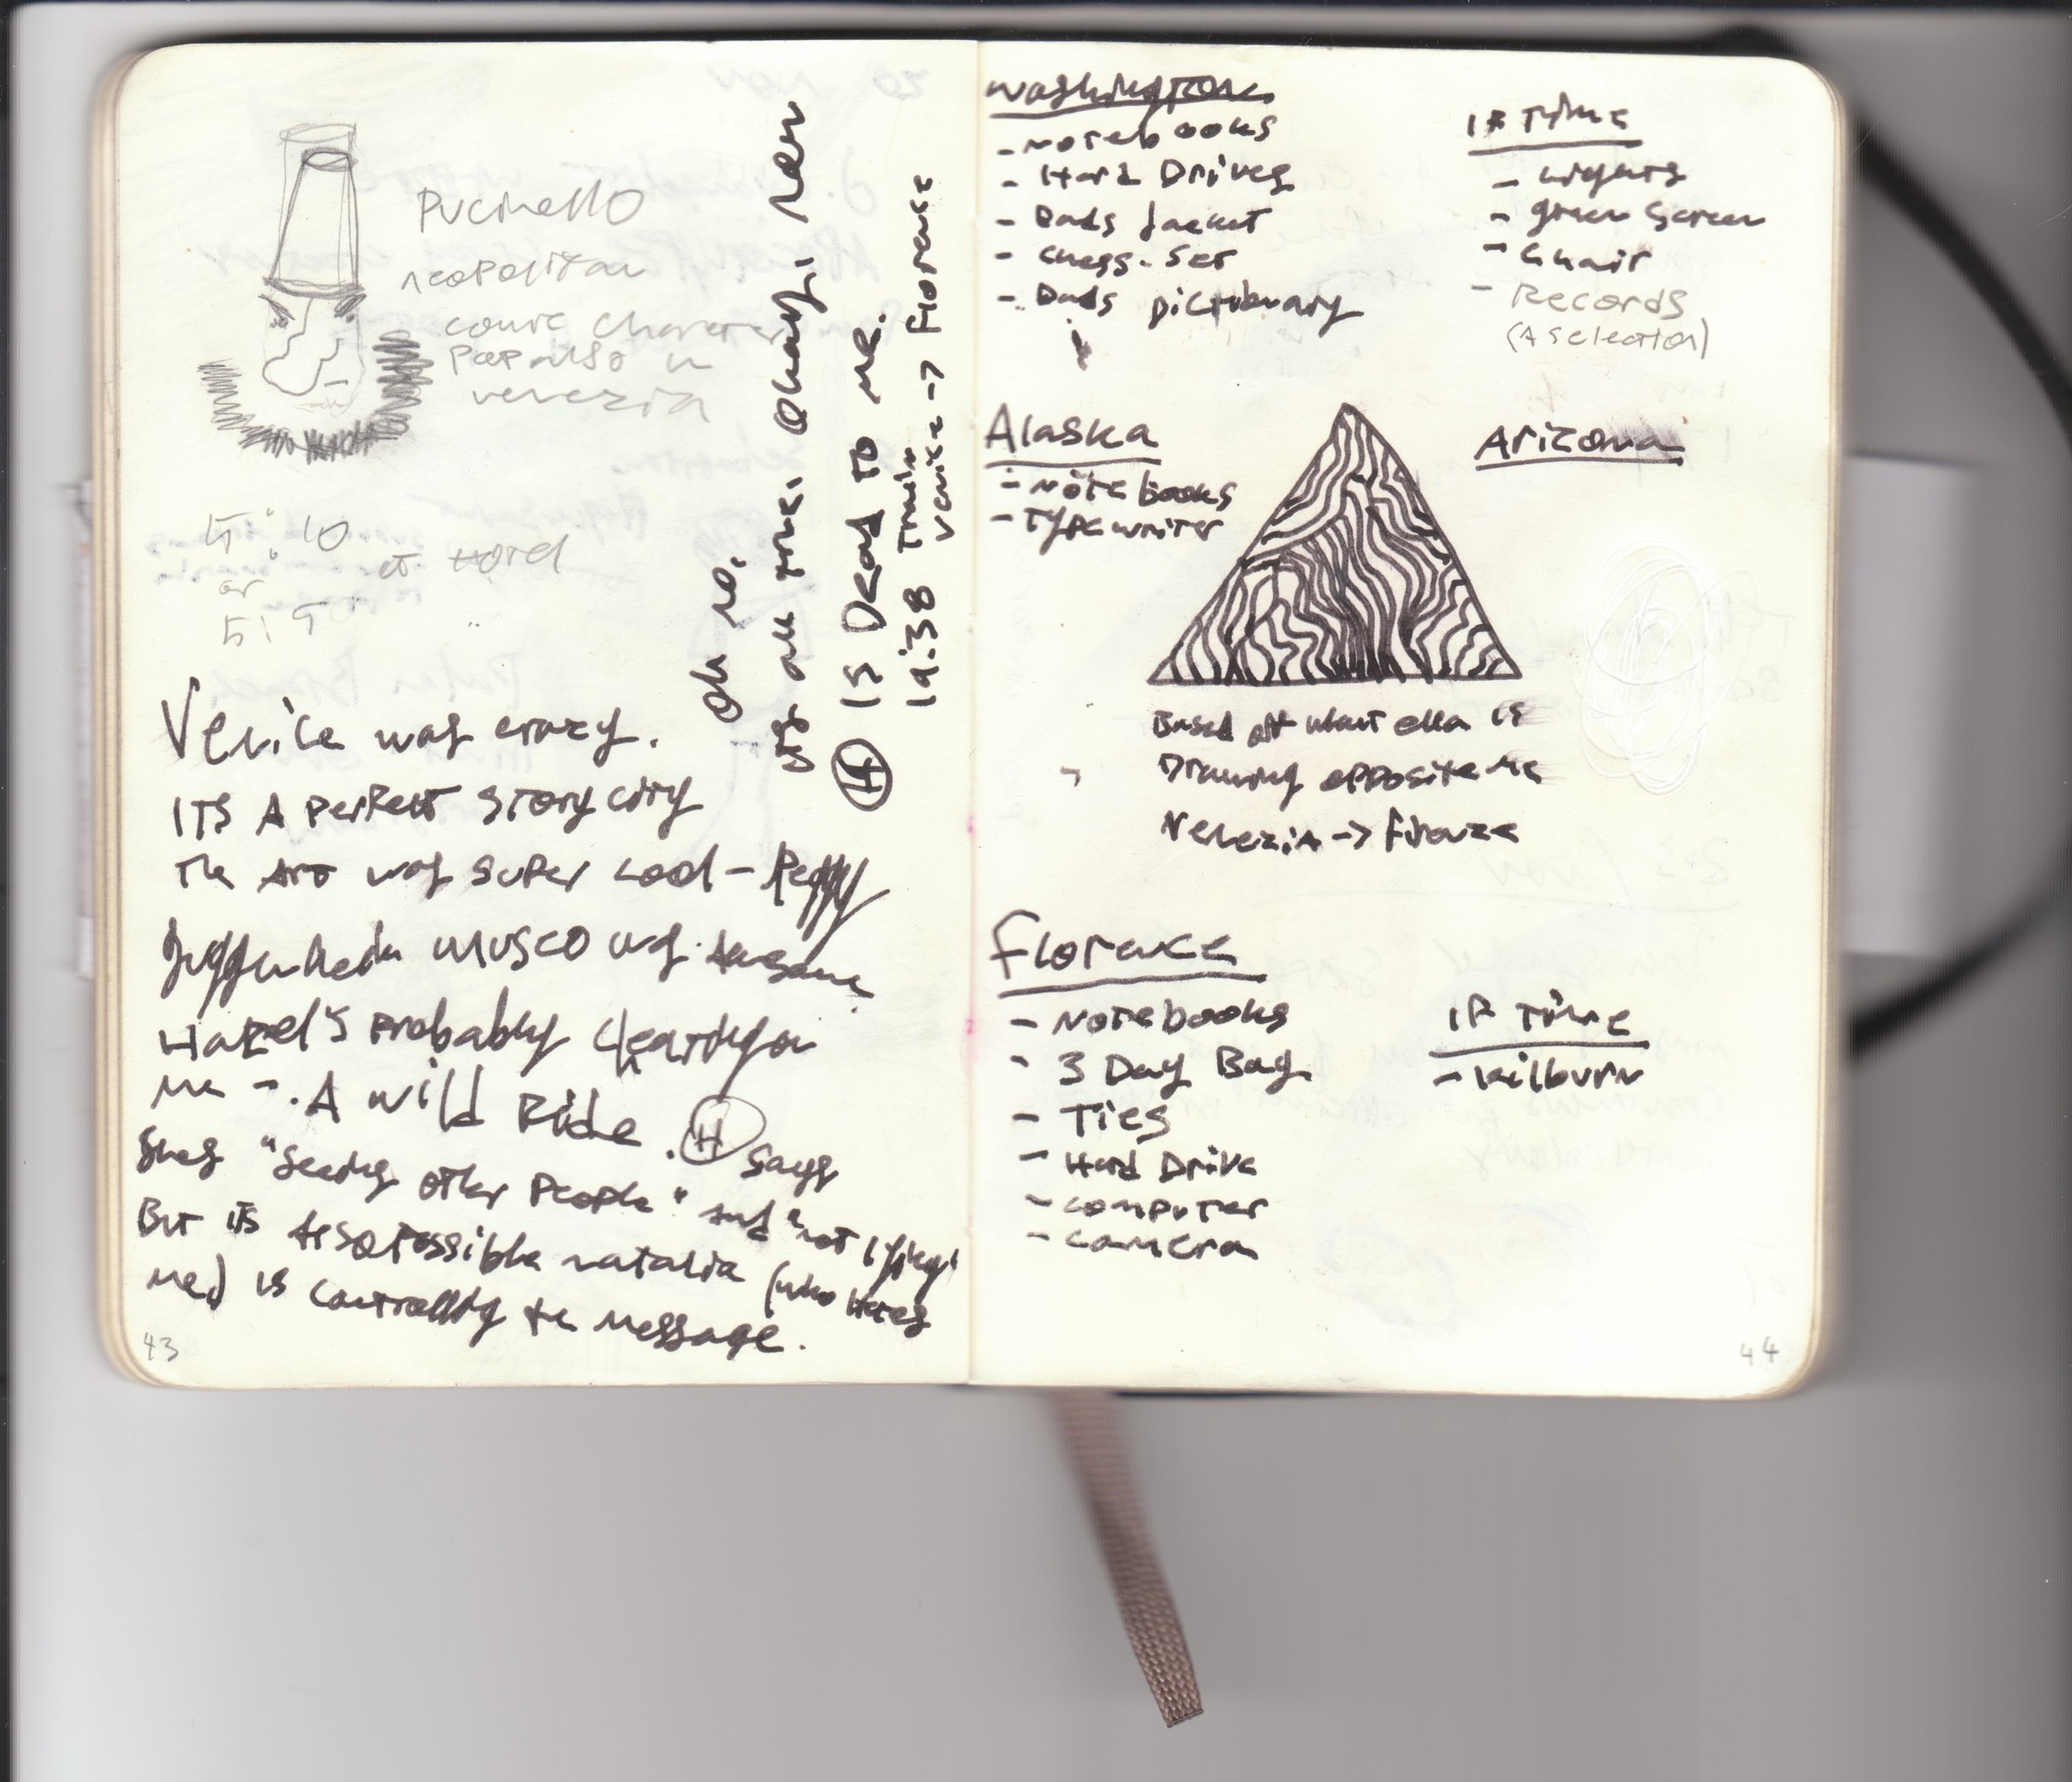 Pucinello
neopolitan
comic character
popular also in
venezia
5:10
or
5:15
at Hotel
Venice was crazy.
ITS A Perfect Story city
The Art was super cool - Peggy
Guggenheim museo was Awesome.
Hazel's probably cheating on
me -. A wild Ride. (H) says
Shes "seeing other people" and "not typing"
But its also possible natalia (who Hates
me) is controlling the message.
Oh no.
was all true. Okay. New
(H) IS Dead TO me.
19:38 Train
Venice -> Florence
43
Washington
- Notebooks
- Hard Drives
- Dads Jacket
- Chess-Set
- Dads Dictionary
IF Time
- Lights
- green Screen
- Chair
- Records
(A selection)
Alaska
- Notebooks
- Typewriter
Arizona
Based off what ella is
Drawing opposite me
Venezia -> Firenze
Florence
- Notebooks
- 3 Day Bag
- Ties
- Hard Drive
- computer
- camera
IF Time
- Kilburn
44